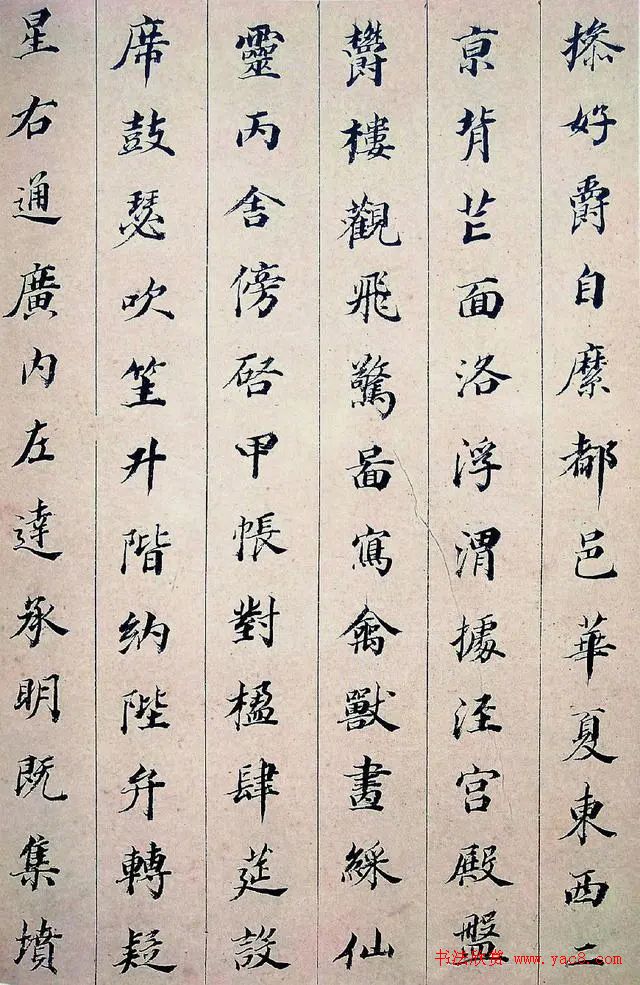 操好爵自縻都邑華夏東西二
京背芒面洛浮渭據涇宮殿盤
鬱樓觀飛驚圖寫禽獸畫綵仙
靈丙舍傍啓甲帳對楹肆筵設
席鼓瑟吹笙升階納陛弁轉疑
星右通廣內左達承明既集墳
书法欣赏 www.yac8.com